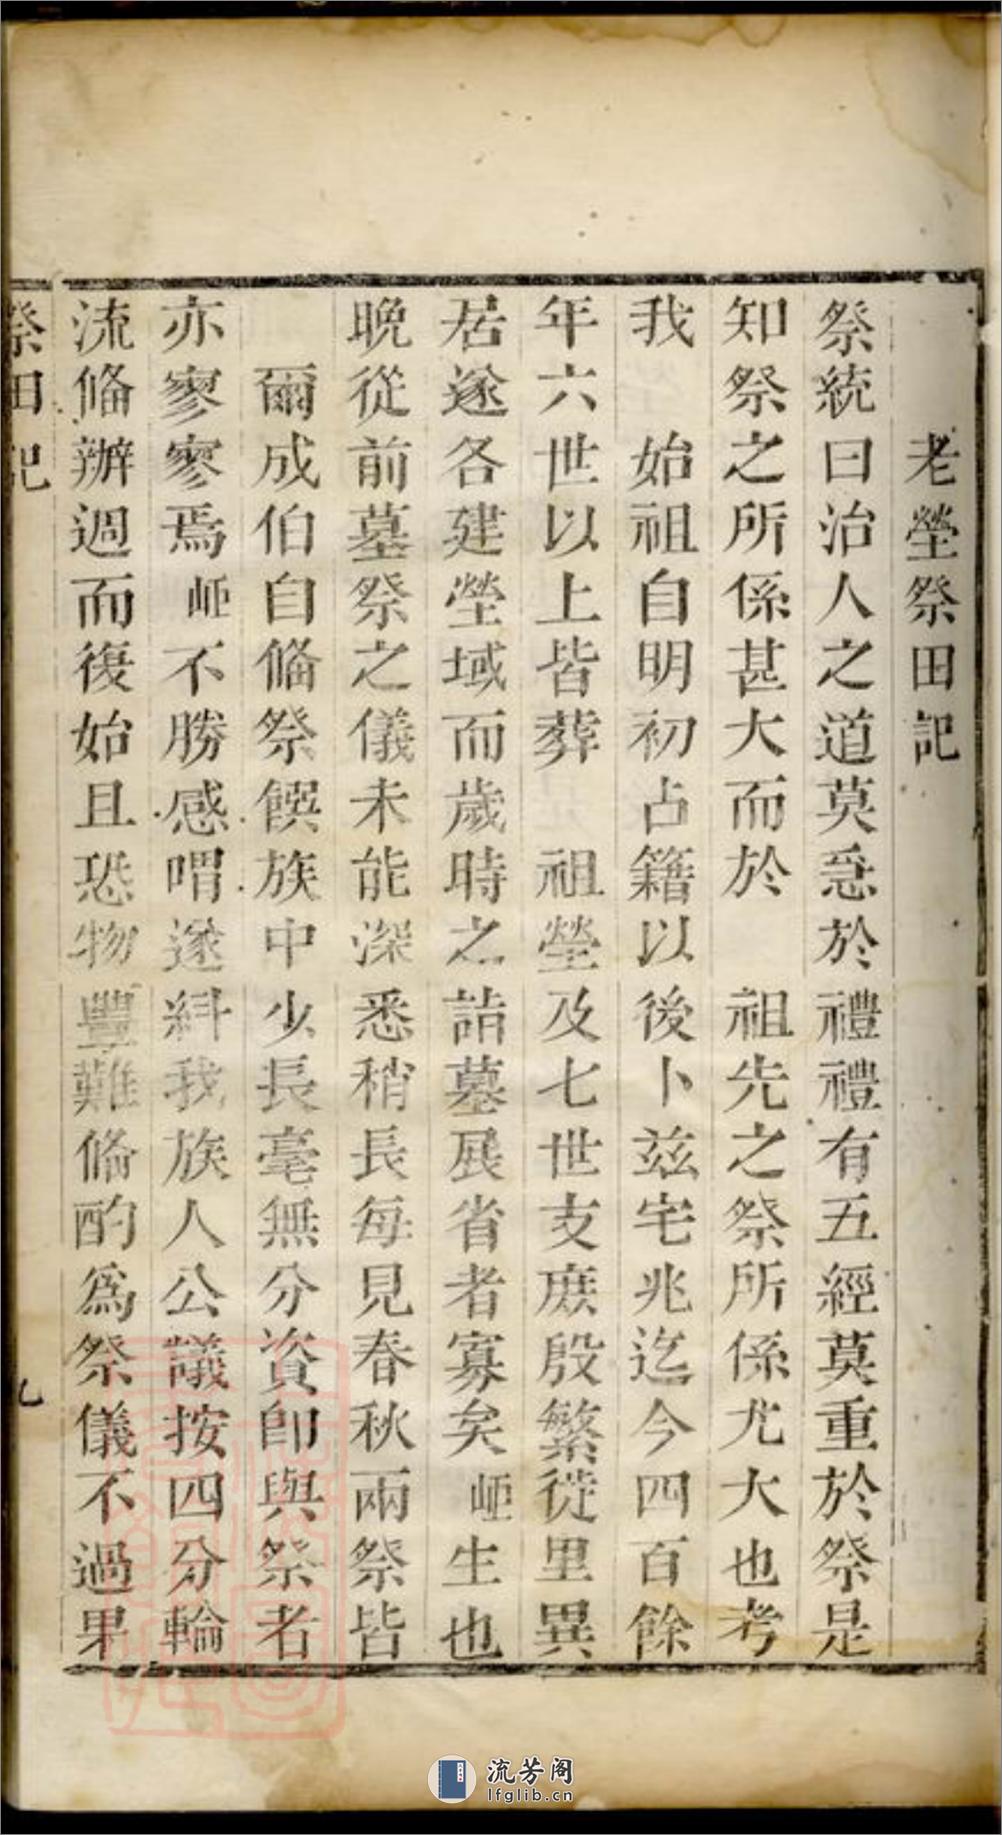 老塋祭田記
祭統曰治人之道莫亟於禮禮有五經莫重於祭是
知祭之所係甚大而於 祖先之祭所係尤大也考
我 始祖自明初占籍以後卜兹宅兆迄今四百餘
年六世以上皆葬 祖塋及七世支庶殷繁徙里異
居遂各建塋域而歲時之詣墓展省者寡矣岠生也
晚從前墓祭之儀未能深悉稍長每見春秋兩祭皆
爾成伯自俻祭饌族中少長毫無分資卽與祭者
亦寥寥焉岠不勝感喟遂糾我族人公議按四分輪
流俻辦週而復始且恐物豐難俻酌為祭儀不過果
祭田記
九
流芳阁
lfglib.cn